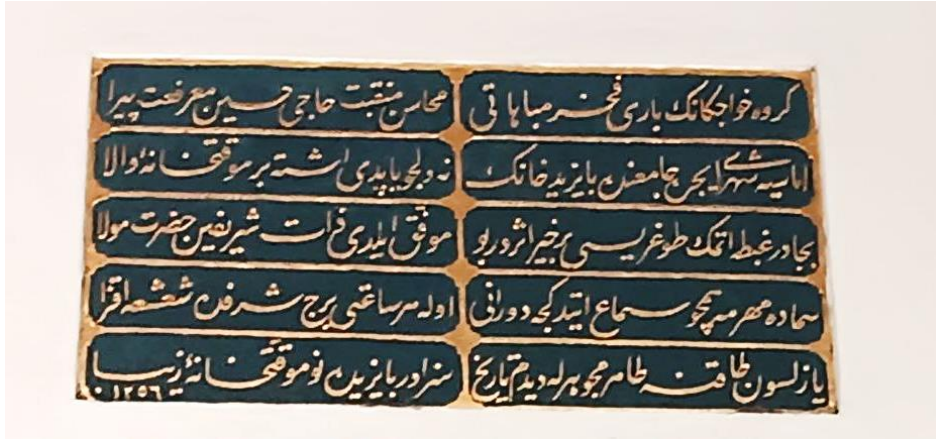 كروه خواجكانك باری فخر مباهاتی محاسن منقبت حاجی حسین معرفت پیرا
اماسیه شهری ایچره جامعنده بایزید خانك نه دلجو یاپدی اشته بر موقتخانۀ والا
بجادر غبطه اتمك طوغریسی بر خیر اثردر بو موفق ایلدی ذات شریفین حضرت مولا
سماده مهر و مه همچو سماع ایتدكجه دورانی اوله هر ساعتی برج شرفدن شعشعه افزا
یازلسون طاقنه طاهر مجوهرله دیدم تاریخ سزادر بایزیده نو موقتخانۀ زیبا
١٢٥٦